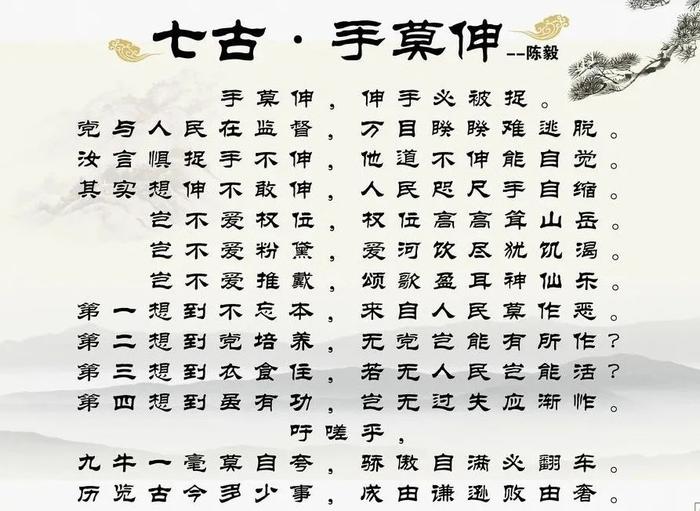 七古·手莫伸--陈毅
手莫伸，伸手必被捉。
党与人民在监督，万目睽睽难逃脱。
汝言惧捉手不伸，他道不伸能自觉。
其实想伸不敢伸，人民咫尺手自缩。
岂不爱权位，权位高高耸山岳。
岂不爱粉黛，爱河饮尽犹饥渴。
岂不爱推戴，颂歌盈耳神仙乐。
第一想到不忘本，来自人民莫作恶。
第二想到党培养，无党岂能有所作？
第三想到衣食住，若无人民岂能活？
第四想到虽有功，岂无过失应渐怍。
吁嗟乎，
九牛一毫莫自夸，骄傲自满必翻车。
历览古今多少事，成由谦逊败由奢。